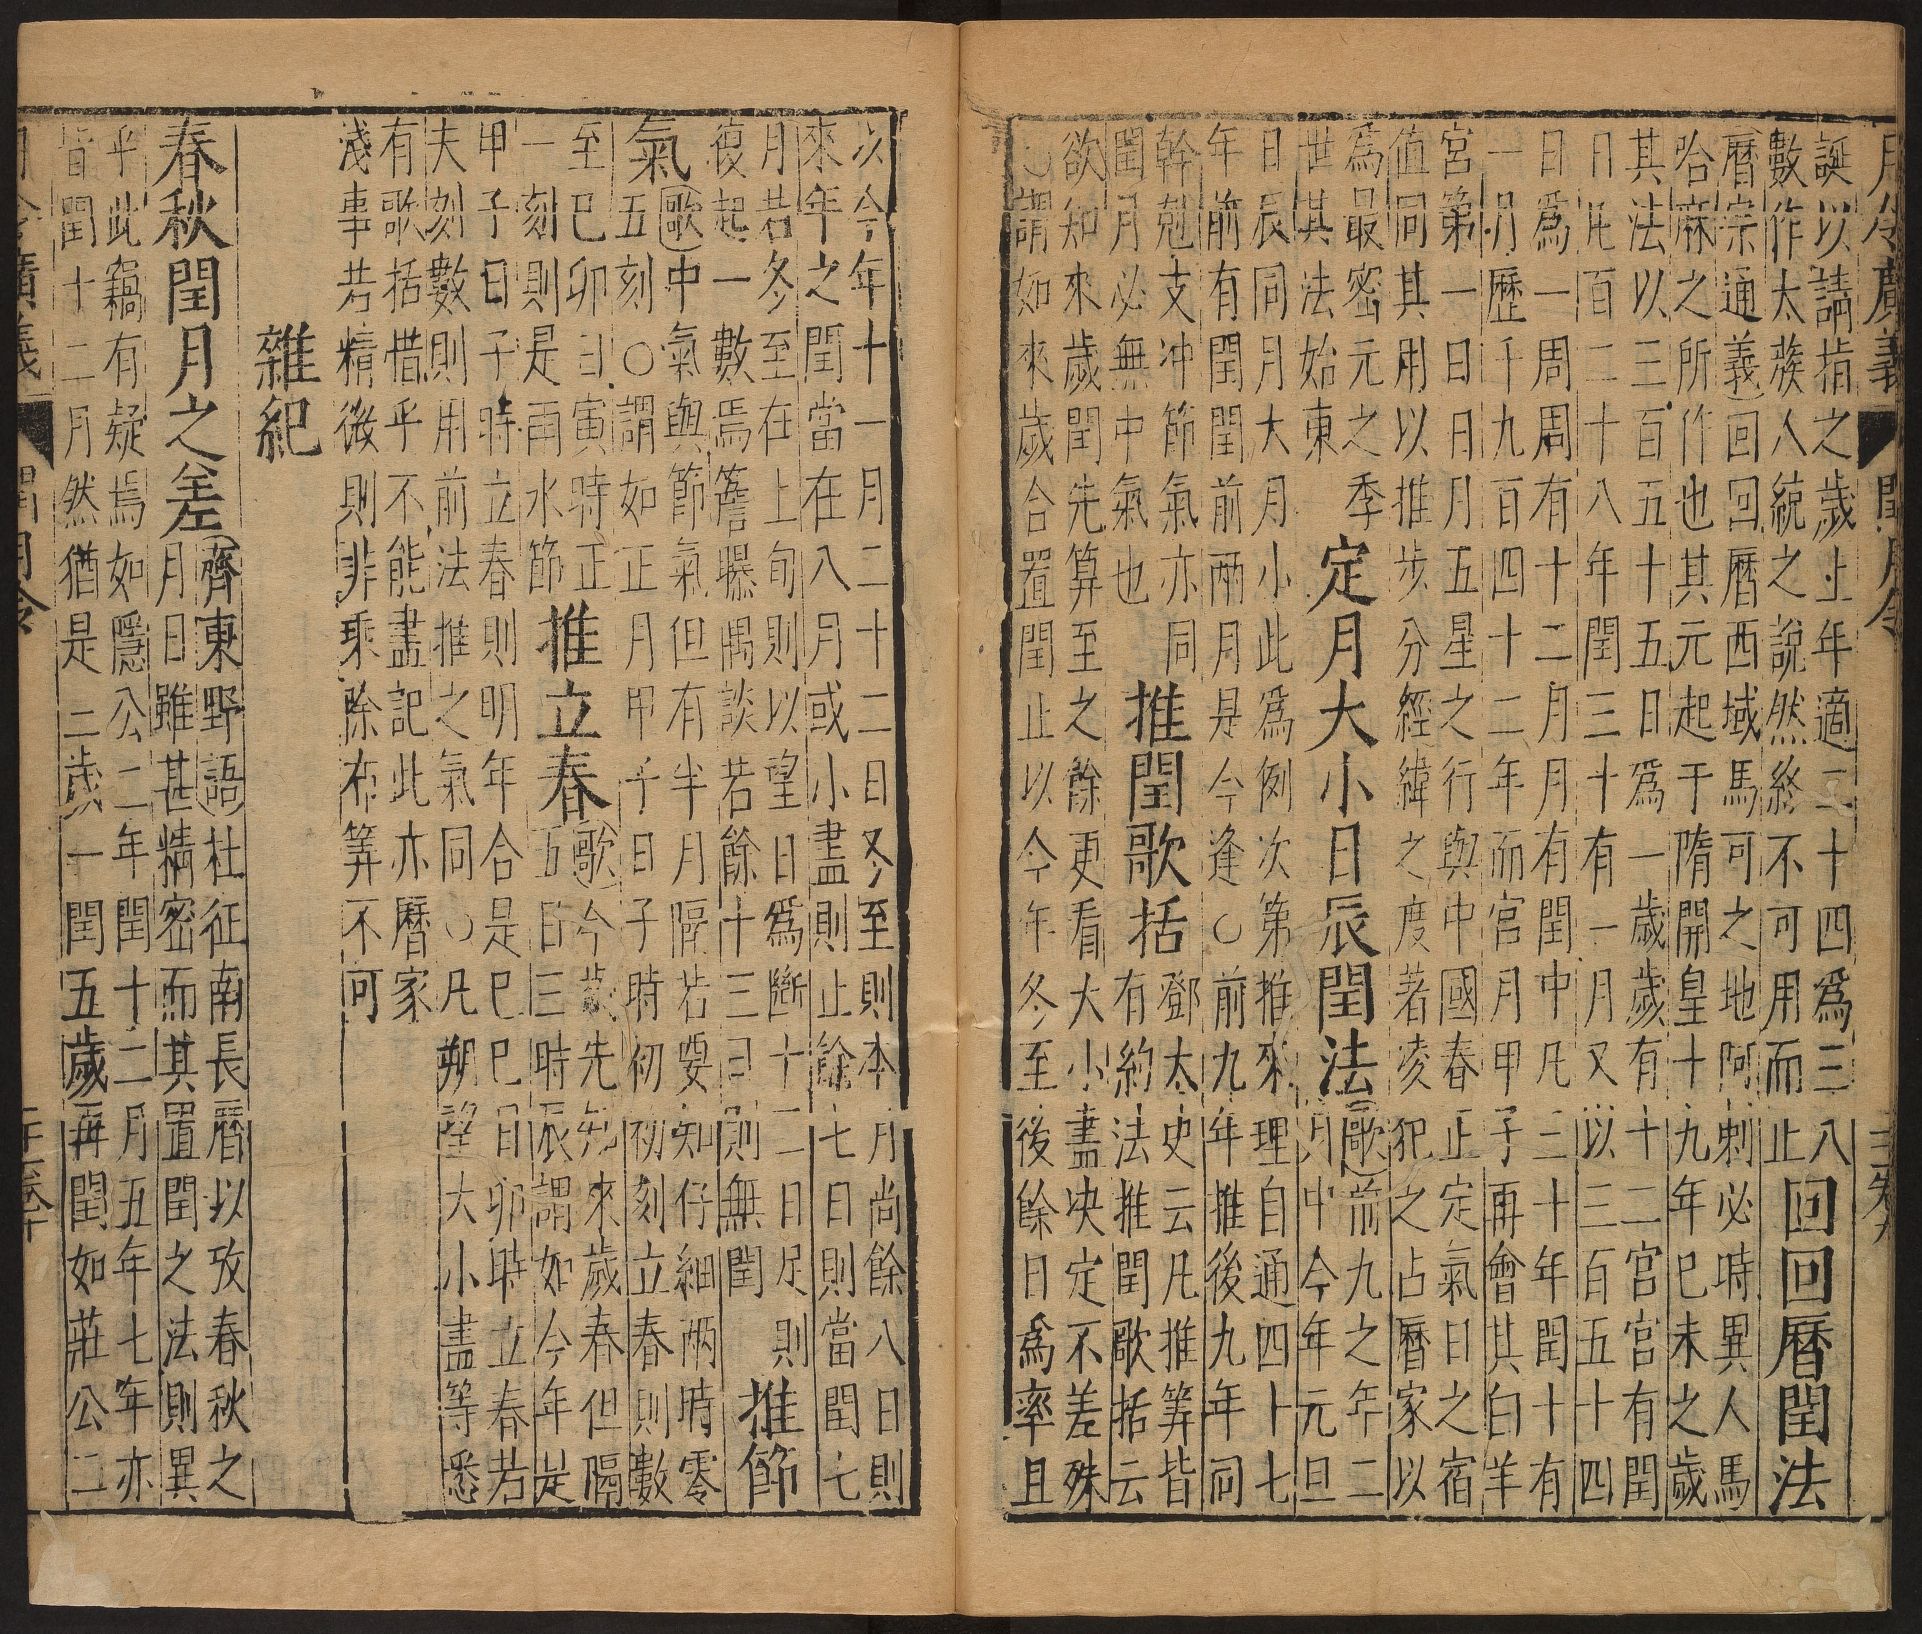 月令廣義 閏月令
誕以請指之歲十年適二十四爲三八
數作太蔟人統之說然終不可用而止 回回曆閏法
曆宗通義回回曆西域馬可之地阿剌必時異人馬
哈麻之所作也其元起于隋開皇十九年巳未之歲
其法以三百五十五日爲一歲歲有十二宮宮有閏
日凡百二十八年閏三十有一月又以三百五十四
日爲一周周有十二月月有閏中凡三十年閏十有
一月歷千九百四十二年而宮月甲子再會其白羊
宮第一日日月五星之行與中國春正定氣日之宿
值同其用以推步分經緯之度著凌犯之占曆家以
爲最密元之季 定月大小日辰閏法 歌前九之年二
世其法始東 月中今年元旦
日辰同月大月小此爲例次第推來理自通四十七
年前有閏閏前兩月是今逢○前九年推後九年同
幹剋支冲節氣亦同 推閏歌括 鄧太史云凡推筭皆
閏月必無中氣也 有約法推閏歌括云
欲知來歲閏先算至之餘更看大小盡决定不差殊
○謂如來歲合置閏止以今年冬至後餘日爲率且
以今年十一月二十二日冬至則本月尚餘八日則
來年之閏當在八月或小盡則止餘七日則當閏七
月若冬至在上旬則以望日爲斷十二日足則
復起一數焉簷曝偶談若餘十三日則無閏 推節
氣 歌中氣與節氣但有半月隔若要知仔細兩時零
五刻○謂如正月甲子日子時初初刻立春則數
至巳卯日寅時正 推立春 歌今歲先知來歲春但隔
一刻則是雨水節 五日三時辰謂如今年是
甲子日子時立春則明年合是巳巳日卯時立春若
夫刻數則用前法推之氣同○凡朔望大小盡等悉
有歌括惜乎不能盡記此亦曆家
淺事若精微則非乘除布筭不可
雜紀
春秋閏月之差 齊東野語杜征南長曆以攷春秋之
月日雖甚精密而其置閏之法則異
乎此竊有疑焉如隱公二年閏十二月五年七年亦
皆閏十二月然猶是二歲一閏五歲再閏如莊公二